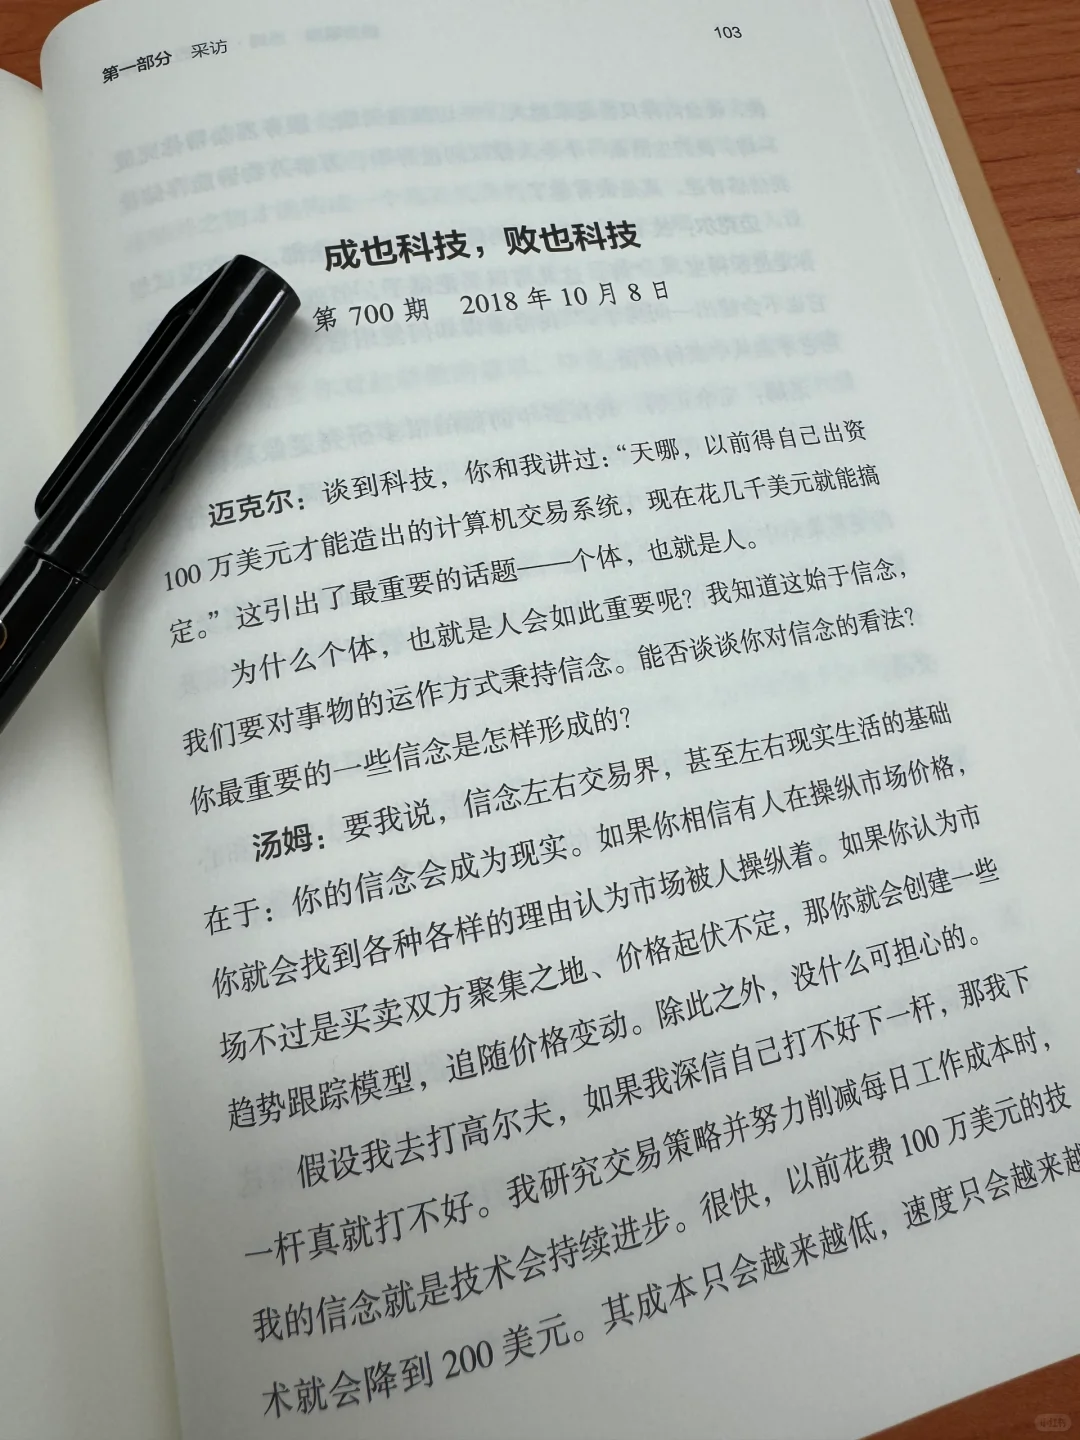 第一部分 采访 103
成也科技，败也科技
第 700 期 2018 年 10 月 8 日
迈克尔：谈到科技，你和我讲过：“天哪，以前得自己出资
100 万美元才能造出的计算机交易系统，现在花几千美元就能搞
定。”这引出了最重要的话题——个体，也就是人。
为什么个体，也就是人会如此重要呢？我知道这始于信念，
我们要对事物的运作方式秉持信念。能否谈谈你对信念的看法？
你最重要的一些信念是怎样形成的？
汤姆：要我说，信念左右交易界，甚至左右现实生活的基础
在于：你的信念会成为现实。如果你相信有人在操纵市场价格，
你就会找到各种各样的理由认为市场被人操纵着。如果你认为市
场不过是买卖双方聚集之地、价格起伏不定，那你就会创建一些
趋势跟踪模型，追随价格变动。除此之外，没什么可担心的。
假设我去打高尔夫，如果我深信自己打不好下一杆，那我下
一杆真就打不好。我研究交易策略并努力削减每日工作成本时，
我的信念就是技术会持续进步。很快，以前花费 100 万美元的技
术就会降到 200 美元。其成本只会越来越低，速度只会越来越
小红书